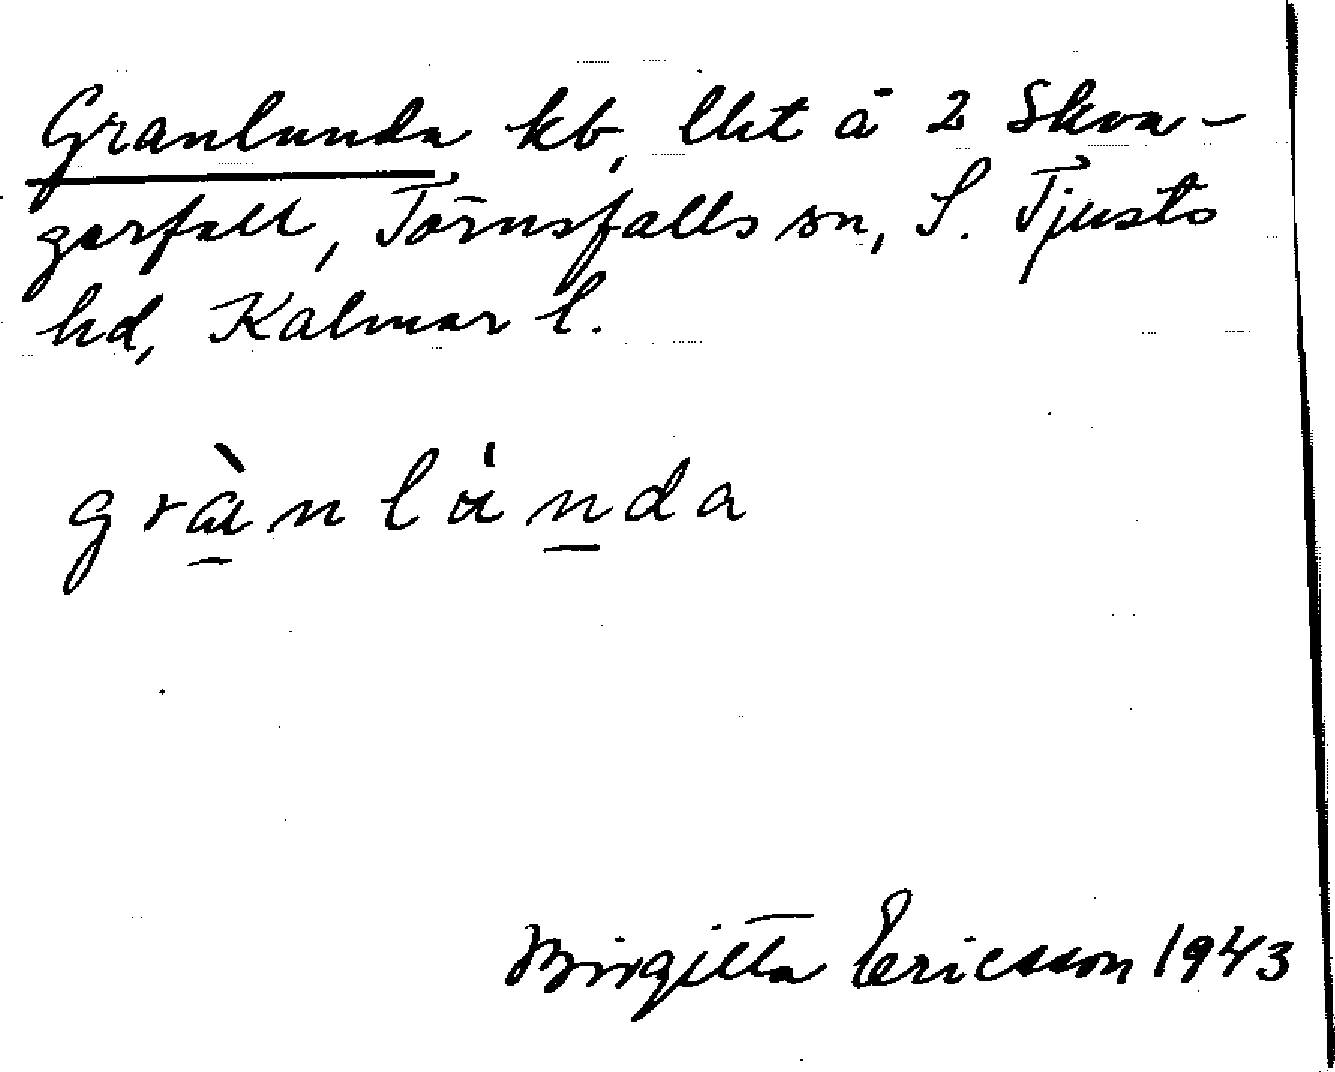 Granlunda kb, lht å 2 Skva-
gerfall, Törnsfalls sn, S. Tjusts
hd, Kalmar l.
grànlùnda
Birgitta Ericsson 1943